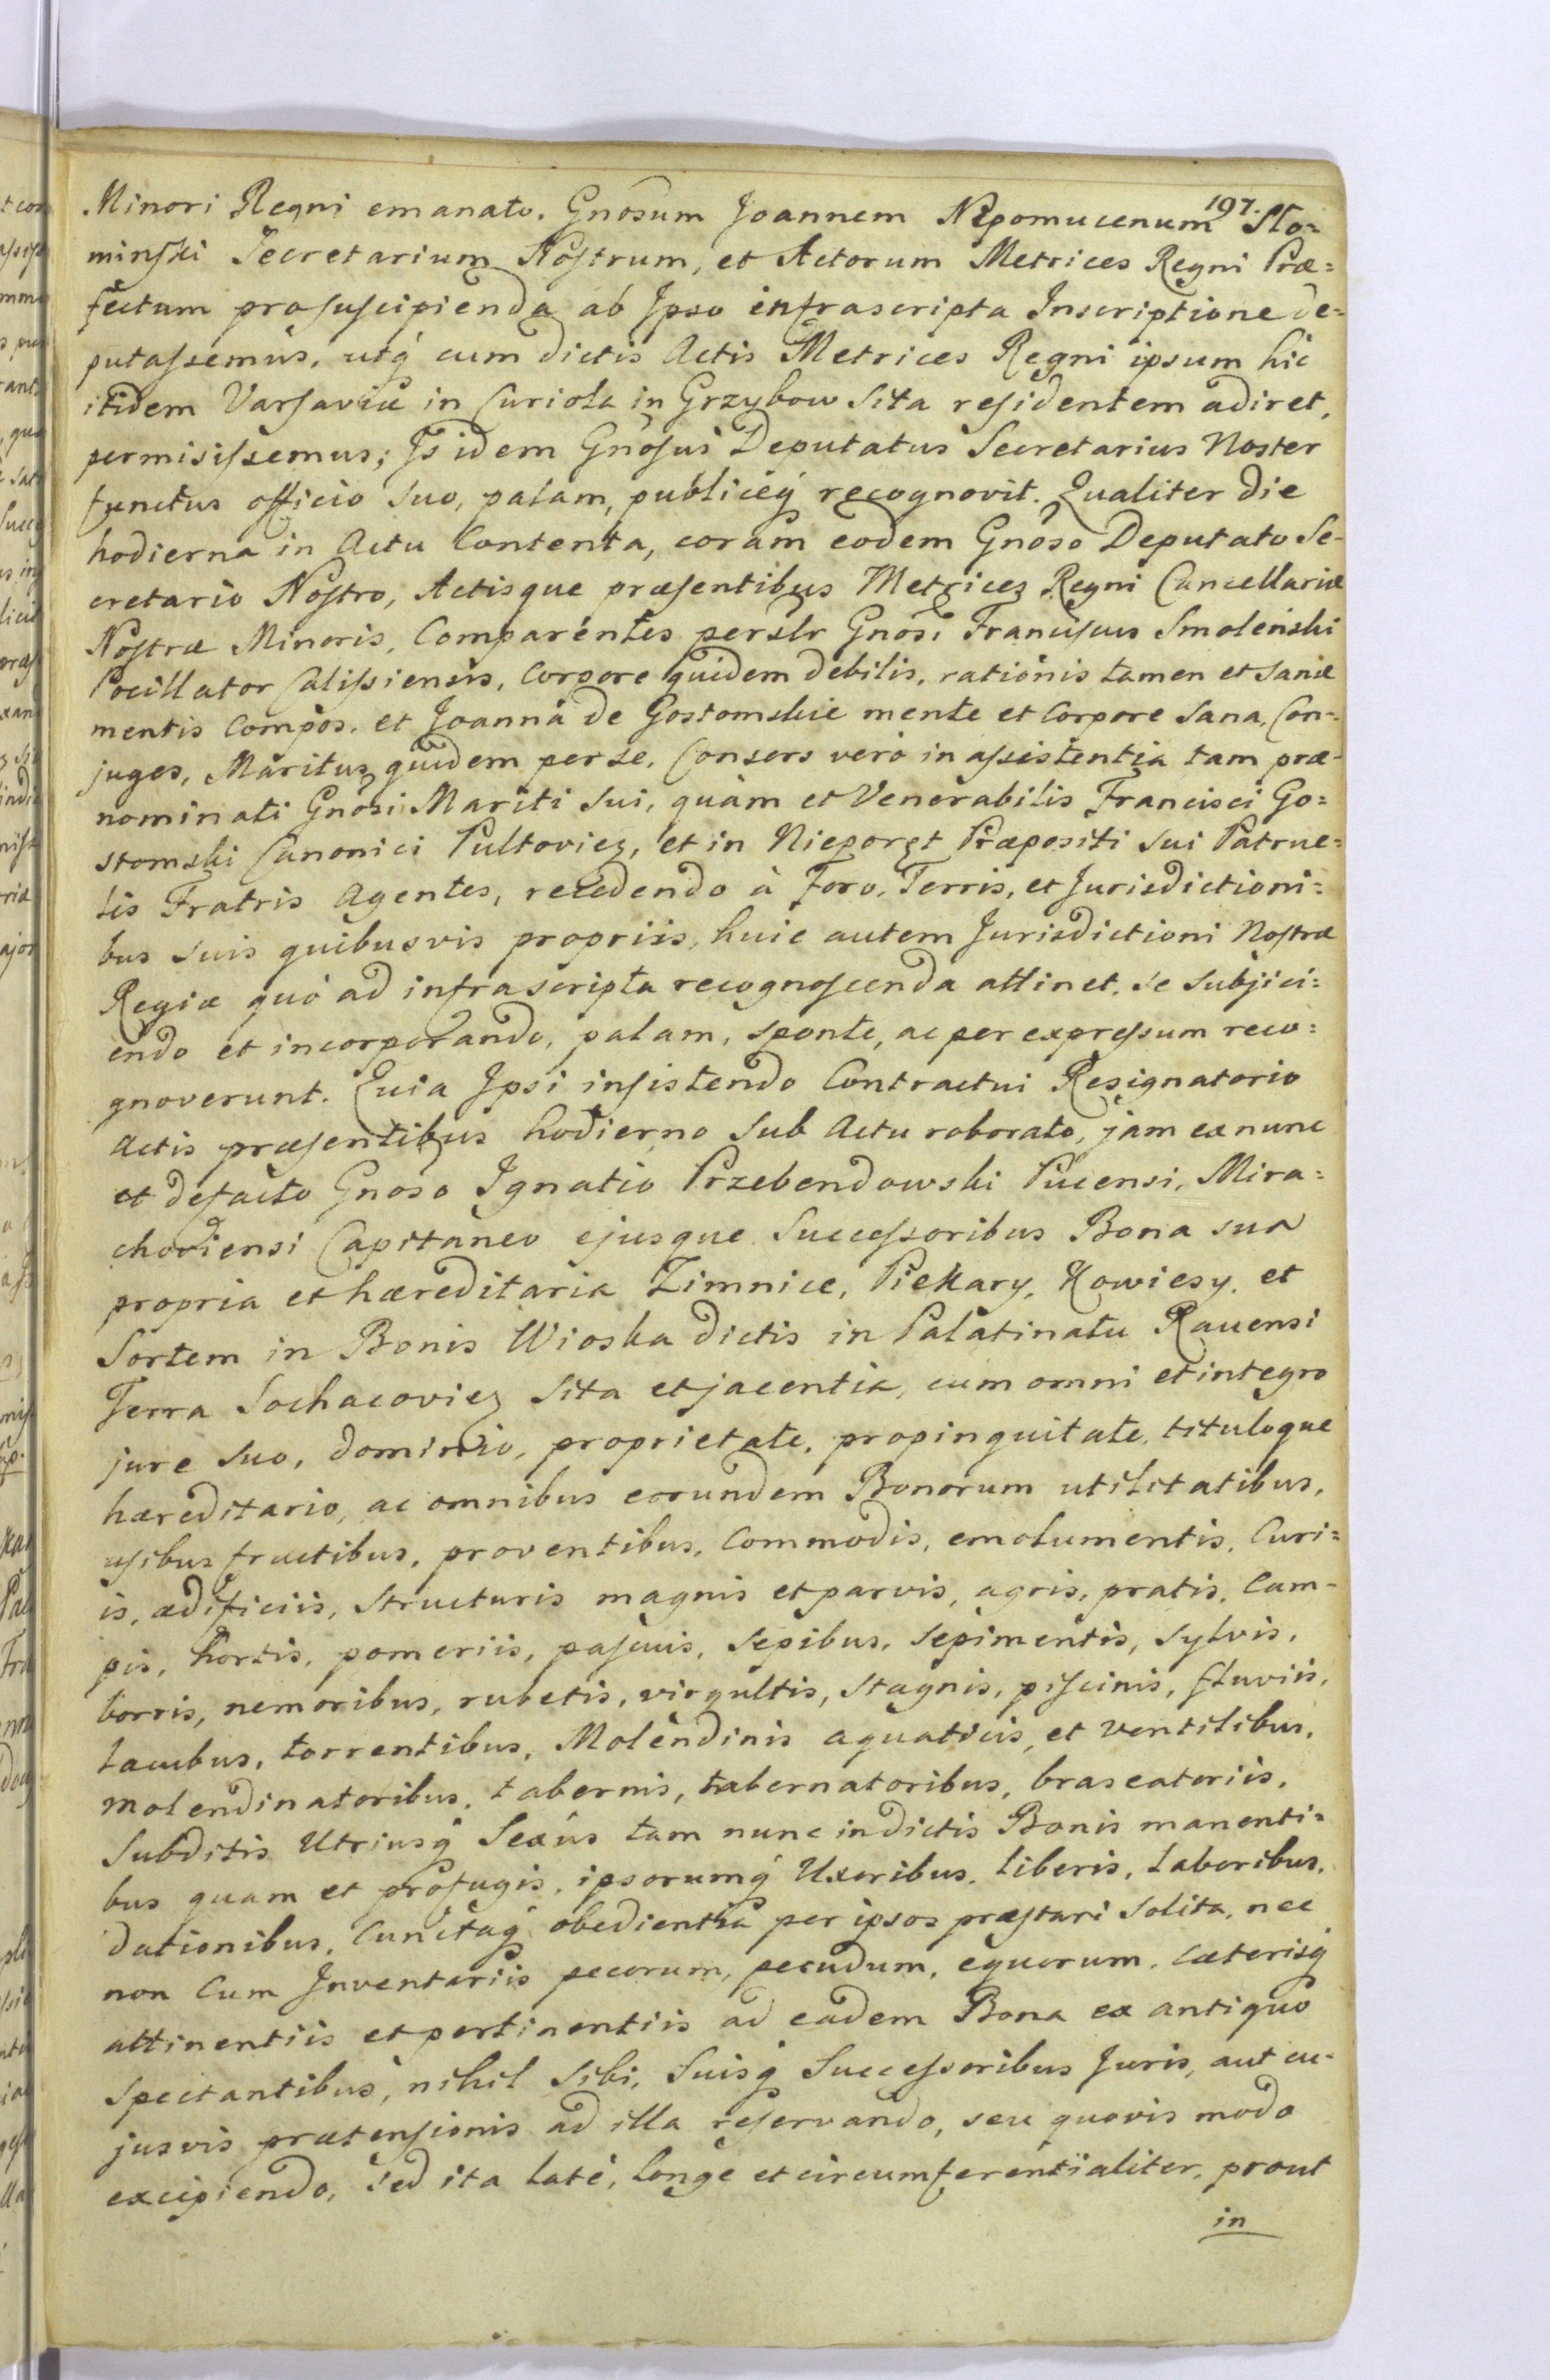 197.
Minori Regni emanato. Gnosum Joannem Nepomucenum Sło=
minski Secretarium Nostrum, et Actorum Metrices Regni Præ=
fectum pro suscipienda ab Ipso infrascripta Inscriptione de=
putassemus, utq́ cum dictis Actis Metrices Regni ipsum hic
itidem Varsaviæ in Curiola in Grzybow sita residentem adiret,
permisissemus; Is idem Gnosus Deputatus Secretarius Noster
functus officio suo, palam, publicéq́ recognovit. Qualiter die
hodierna in Actu Contenta, coram eodem Gnoso Deputato Se-
cretario Nostro, Actisque præsentibus Metrices Regni Cancellariæ
Nostræ Minoris, Comparentes perslr Gnosi Franciscus Smoleński
Pocillator Calissiensis, Corpore quidem debilis, rationis tamen et sanæ
mentis Compos, et Joanna de Gostomskie mente et Corpore Sana, Con=
juges, Maritus quidem per se, Consors veró in assistentia tam præ-
nominati Gnosi Mariti sui, quàm et Venerabilis Francisci Go=
stomski Canonici Pultovien, et in Nieporęt Præpositi sui Patrue=
lis Fratris Agentes, recedendo à Foro, Terris, et Jurisdictioni=
bus suis quibusvis propriis, huic autem Jurisdictioni Nostræ
Regiæ quó ad infrascripta recognoscenda attinet, se subjici=
endo et incorporando, palam, sponte, ac per expressum reco=
gnoverunt. Quia Ipsi insistendo Contractui Resignatorio
Actis præsentibus hodierno sub Actu roborato, jam ex nunc
et de facto Gnoso Ignatio Przebendowski Pucensi, Mira=
choviensi Capitaneo ejusque Successoribus Bona sua
propria et hæreditaria Zimnice, Piekary, Nowiesy, et
Sortem in Bonis Wioska dictis in Palatinatu Ravensi
Terra Sochacovien sita et jacentia, cum omni et integro
jure suo, dominio, proprietate, propinquitate, tituloque
hæreditario, ac omnibus eorundem Bonorum utilitatibus,
usibus fructibus, proventibus, Commodis, emolumentis, Curi=
is, ædificiis, structuris magnis et parvis, agris, pratis, Cam-
pis, hortis, pomeriis, pascuis, sepibus, sepimentis, sylvis,
borris, nemoribus, rubetis, virgultis, stagnis, piscinis, fluviis,
lacubus, torrentibus, Molendinis aquaticis, et ventilibus,
molendinatoribus, tabernis, tabernatoribus, braseatoriis,
Subditis Utriusq́ Sexús tam nunc in dictis Bonis manenti=
bus quam et profugis, ipsorumq́ Uxoribus, liberis, laboribus,
dationibus, Cunctaq́ obedientia per ipsos præstari solita, nec
non Cum Inventariis pecorum, pecudum, equorum, Cæterisq́
attinentiis et pertinentiis ad eadem Bona ex antiquo
spectantibus, nihil sibi, Suisq́ Successoribus Juris, aut cu-
jusvis prætensionis ad illa reservando, seu quovis modo
excipiendo, sed ita laté, longé et circumferentialiter, prout
in